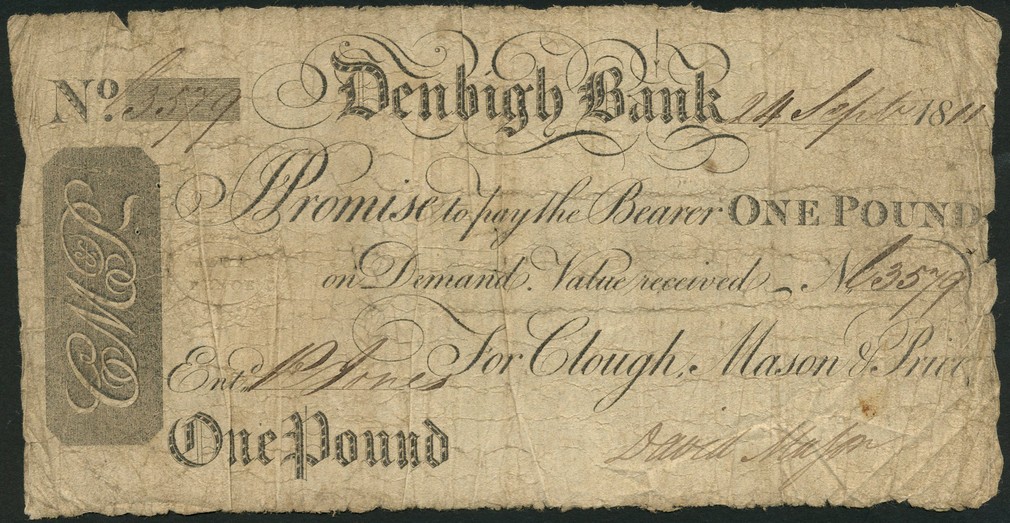 No. 13579 Denbigh Bank 24 Septr 1811
I Promise to pay the Bearer ONE POUND
on Demand. Value received - No 13579
For Clough, Mason & Price,
CM&P
Entd. R Jones
One Pound
David Mason